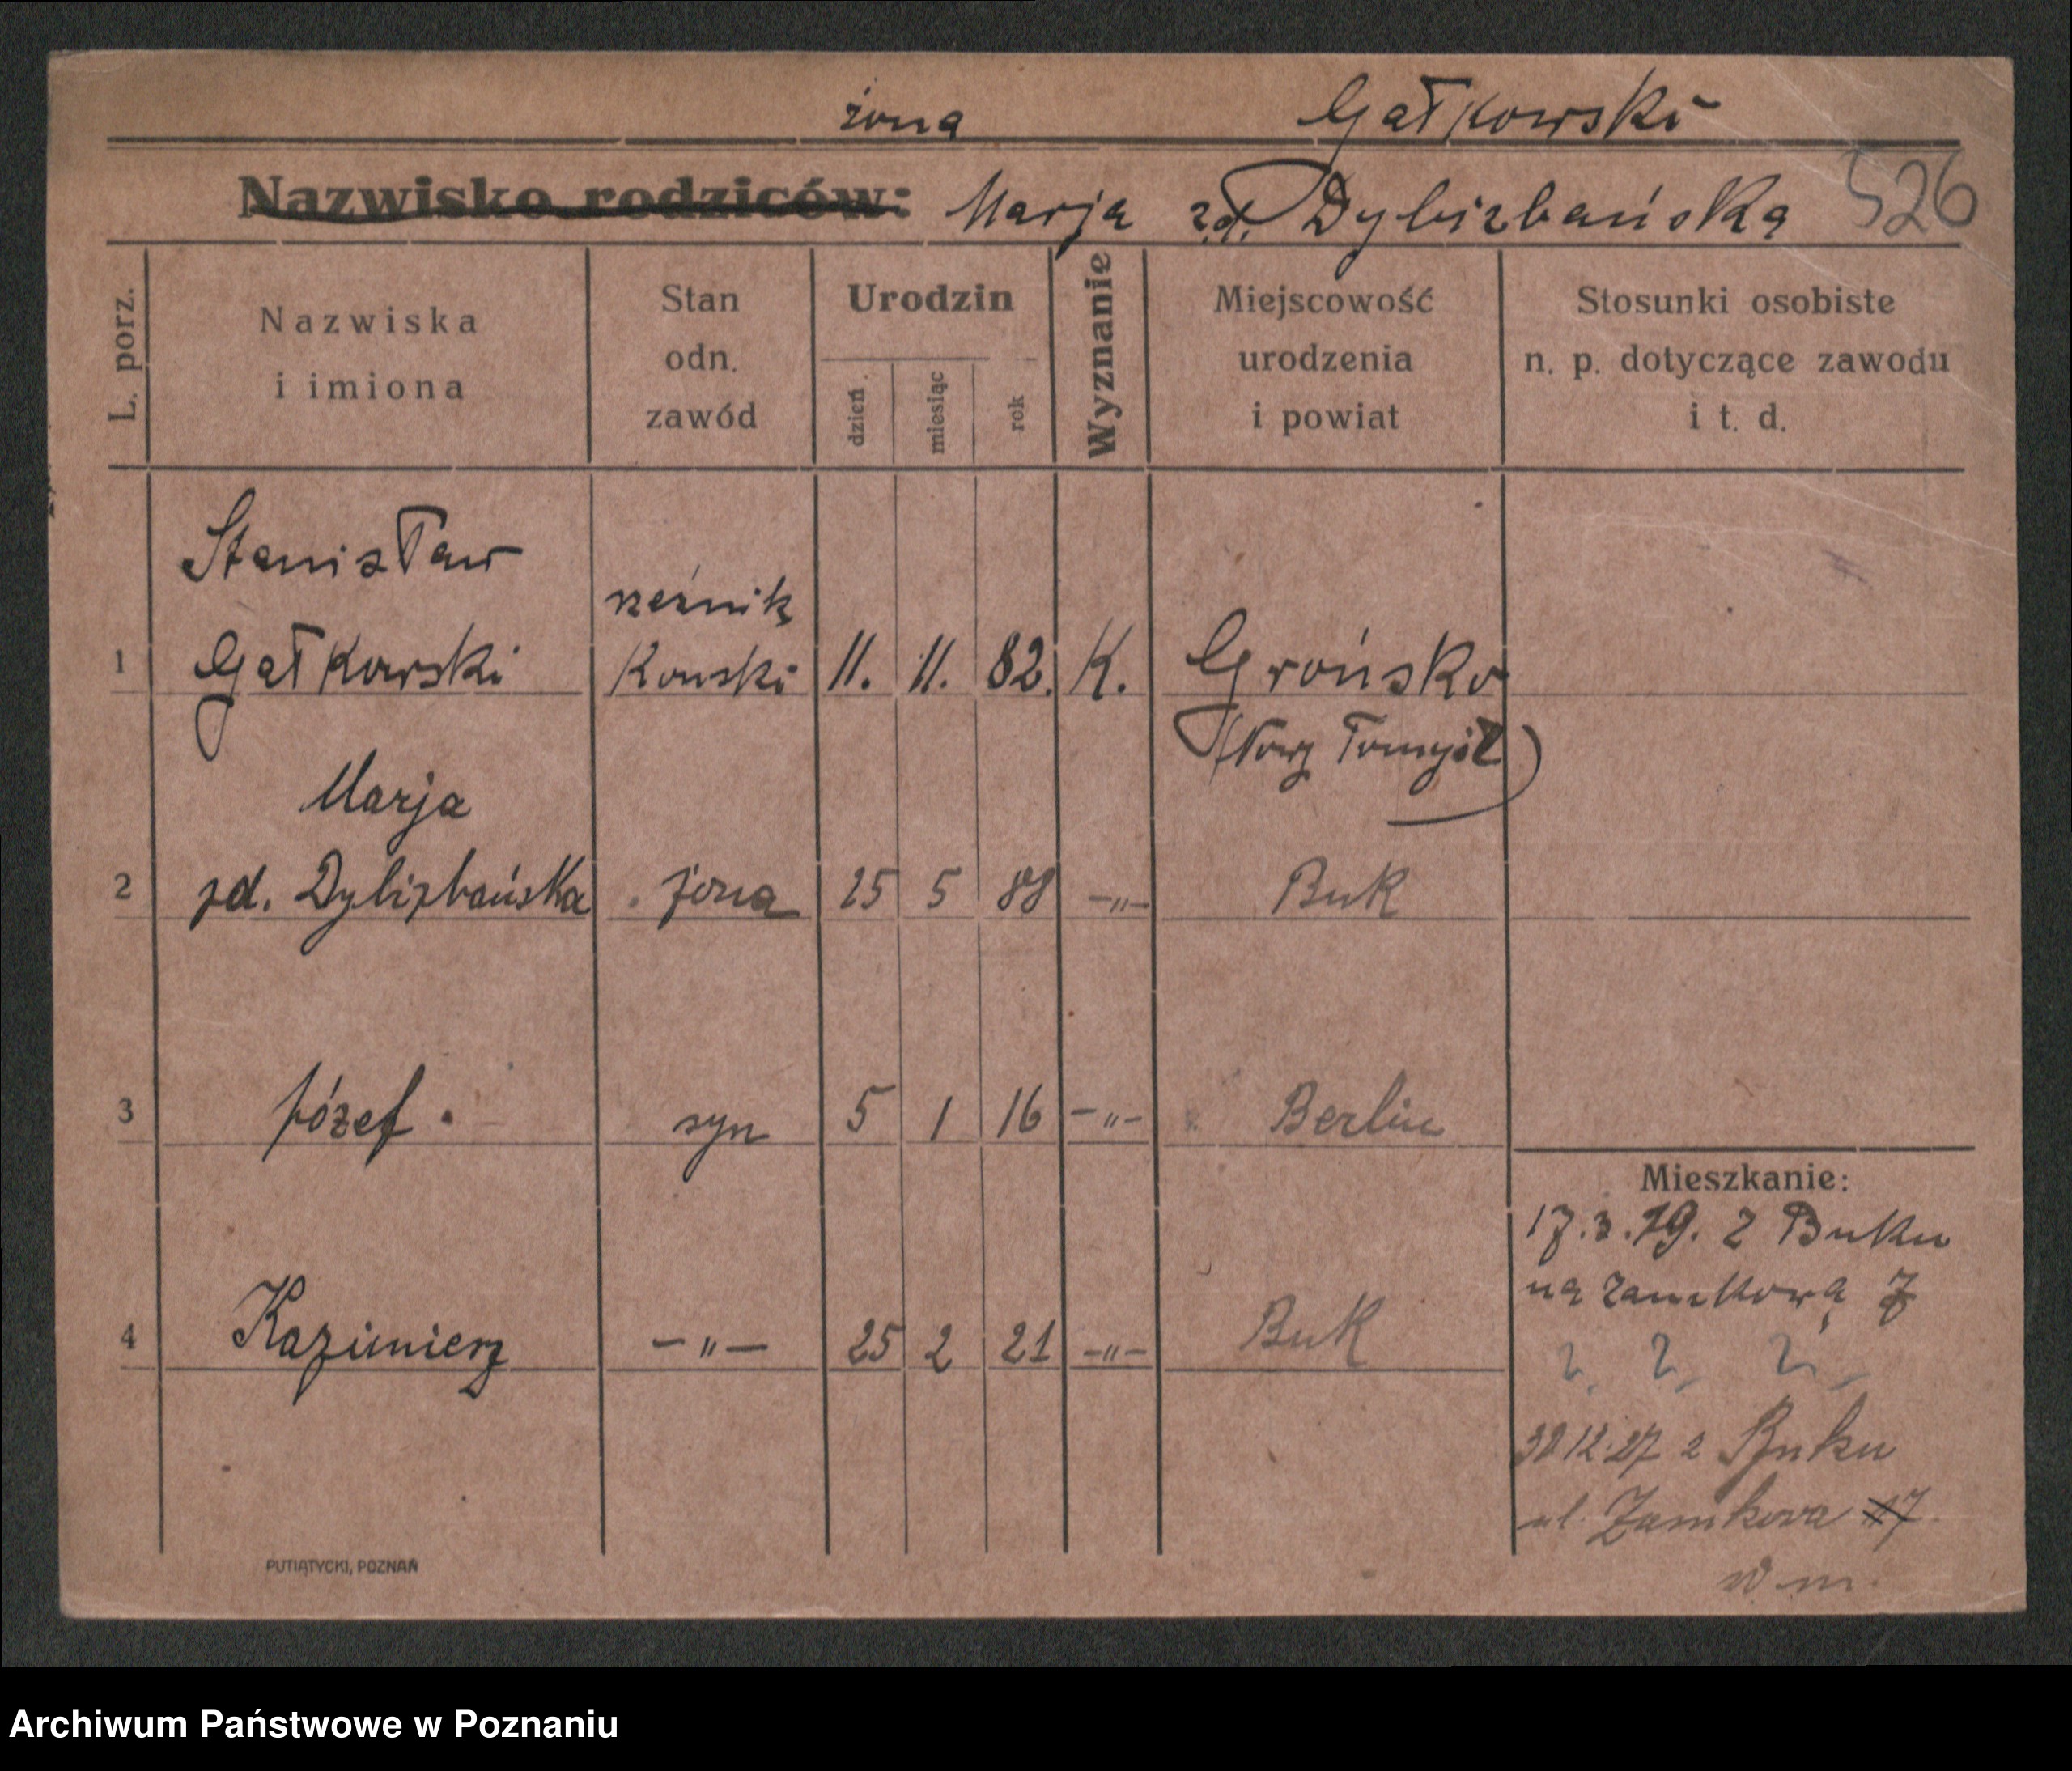 żona Gałkowski
Nazwisko rodziców: Marja z.d. Dybizbańska 526
L. porz.
Nazwiska
i imiona
Stan
odn.
zawód
Urodzin
dzień
miesiąc
rok
Wyznanie
Miejscowość
urodzenia
i powiat
Stosunki osobiste
n. p. dotyczące zawodu
i t. d.
Stanisław
rzeźnik
1 Gałkowski Konski 11. 11. 82. K. Grońsko
(Nowy Tomyśl)
Marja
2 zd. Dybizbańska żona 25 5 88 -„- Buk
3 Józef syn 5 1 16 -„- Berlin
Mieszkanie:
17.3.19. z Buku
na Zamkową 7
4 Kazimierz -„- 25 2 21 -„- Buk
?. ?. ?.
12.27 z Buku
ul. Zamkowa 7
w m.
PUTIATYCKI, POZNAŃ
Archiwum Państwowe w Poznaniu